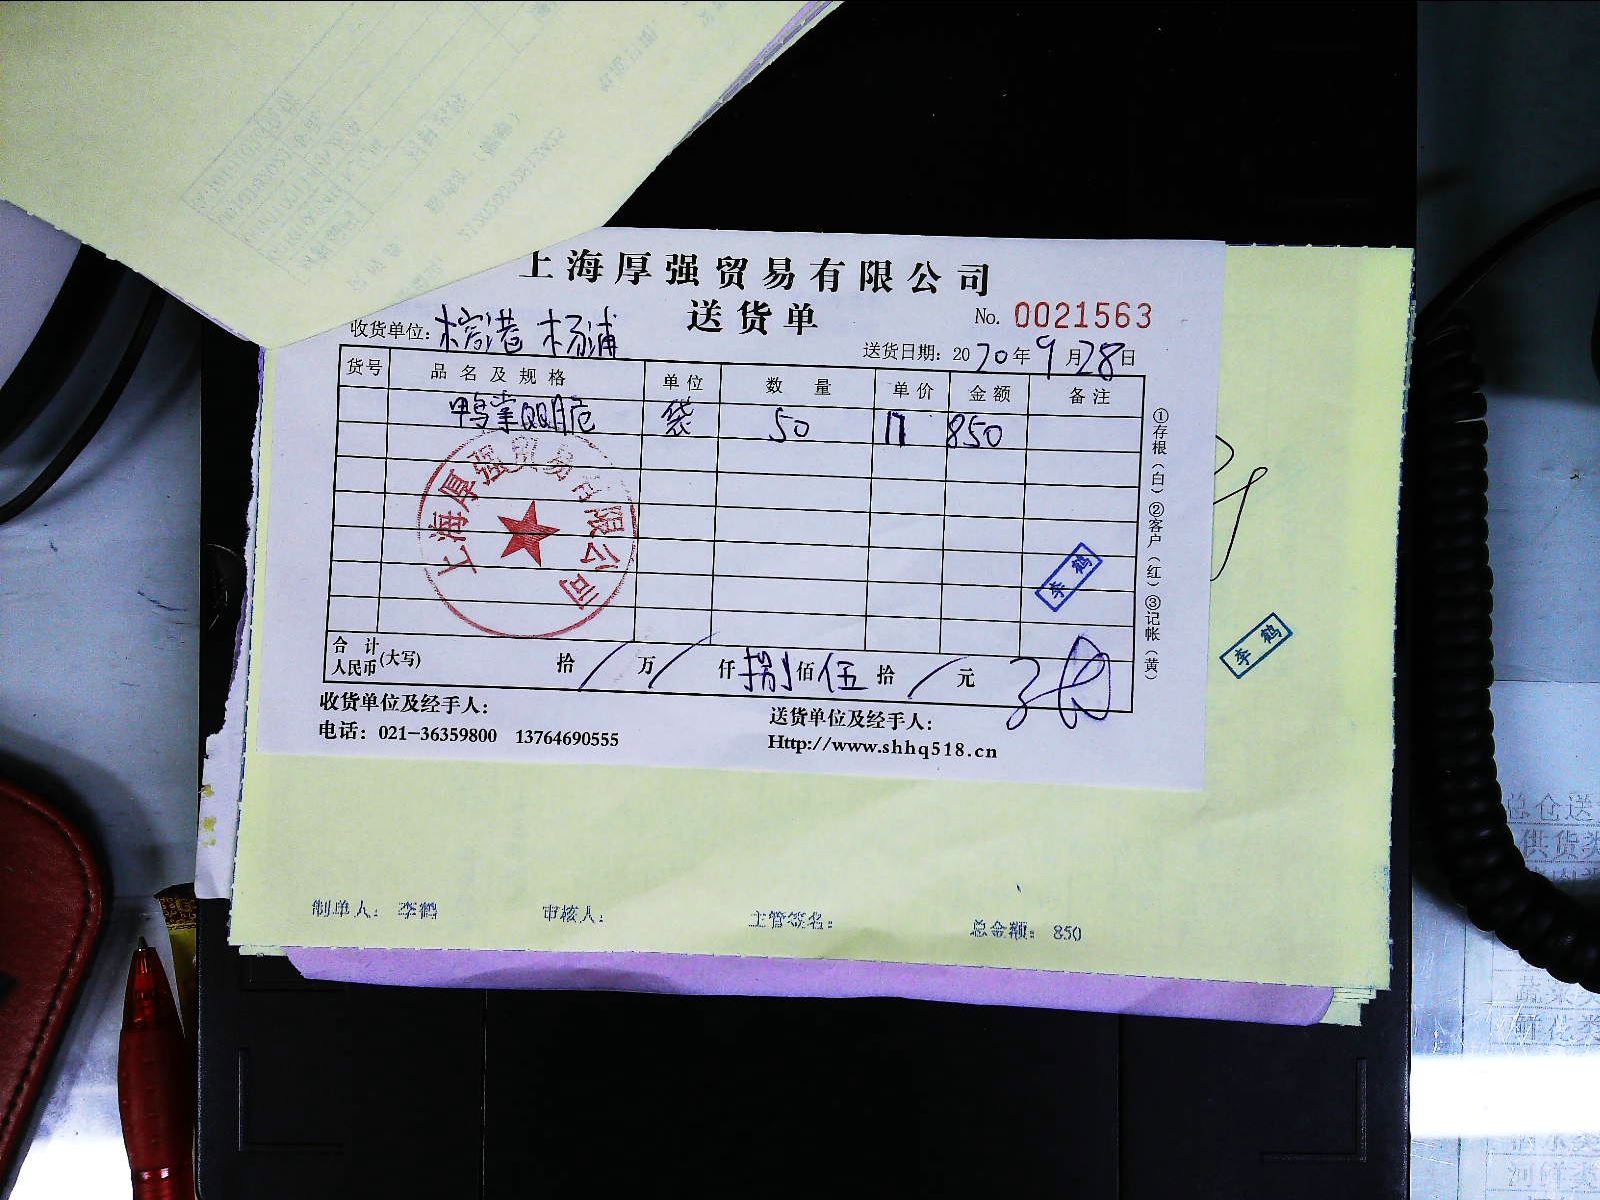 上海厚强贸易有限公司
送货单
No. 0021563
收货单位: 杨浦
送货日期: 2020年9月28日
货号 品名及规格 单位 数量 单价 金额 备注
鸭掌 袋 50 17 850
上海厚强贸易有限公司
①存根(白)②客户(红)③记帐(黄)
李鹤
李鹤
合计人民币(大写) 拾/万/仟捌佰伍拾/元
收货单位及经手人:
送货单位及经手人:
电话: 021-36359800 13764690555
Http://www.shhq518.cn
制单人: 李鹤 审核人: 主管签名: 总金额: 850
总仓送
供货类
蔬菜类
鲜花类
河鲜类